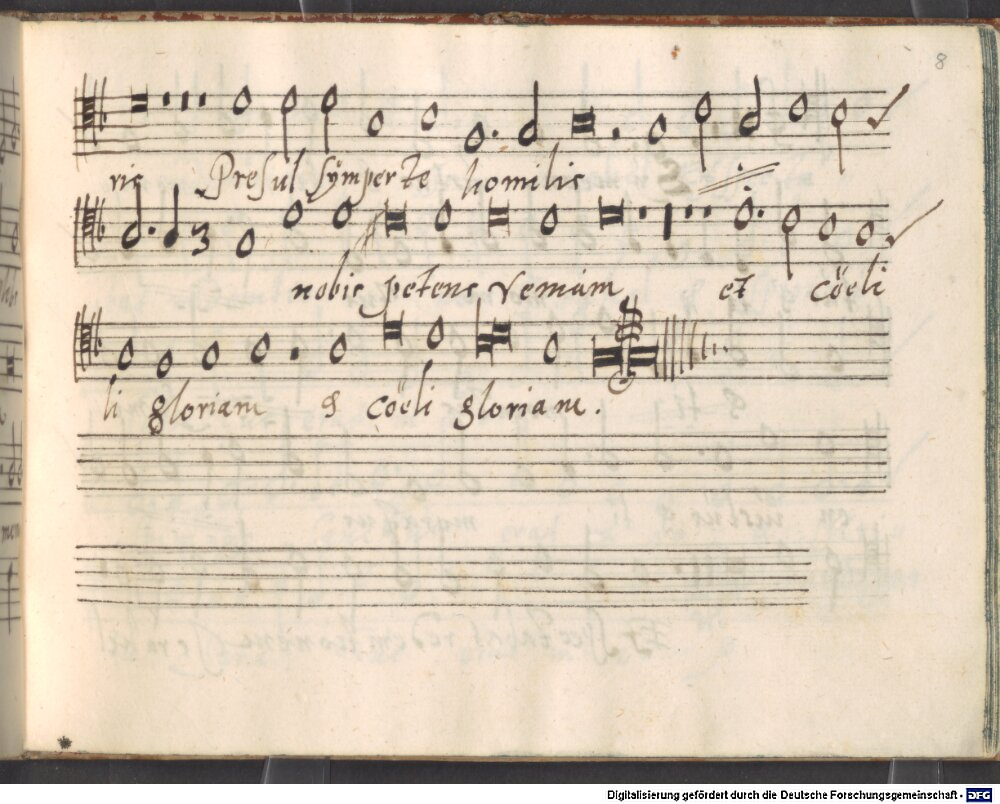 8
ris Presul Symperte homilis
3
nobis petens veniam et cöeli
li gloriam & cöeli gloriam.
Digitalisierung gefördert durch die Deutsche Forschungsgemeinschaft - DFG